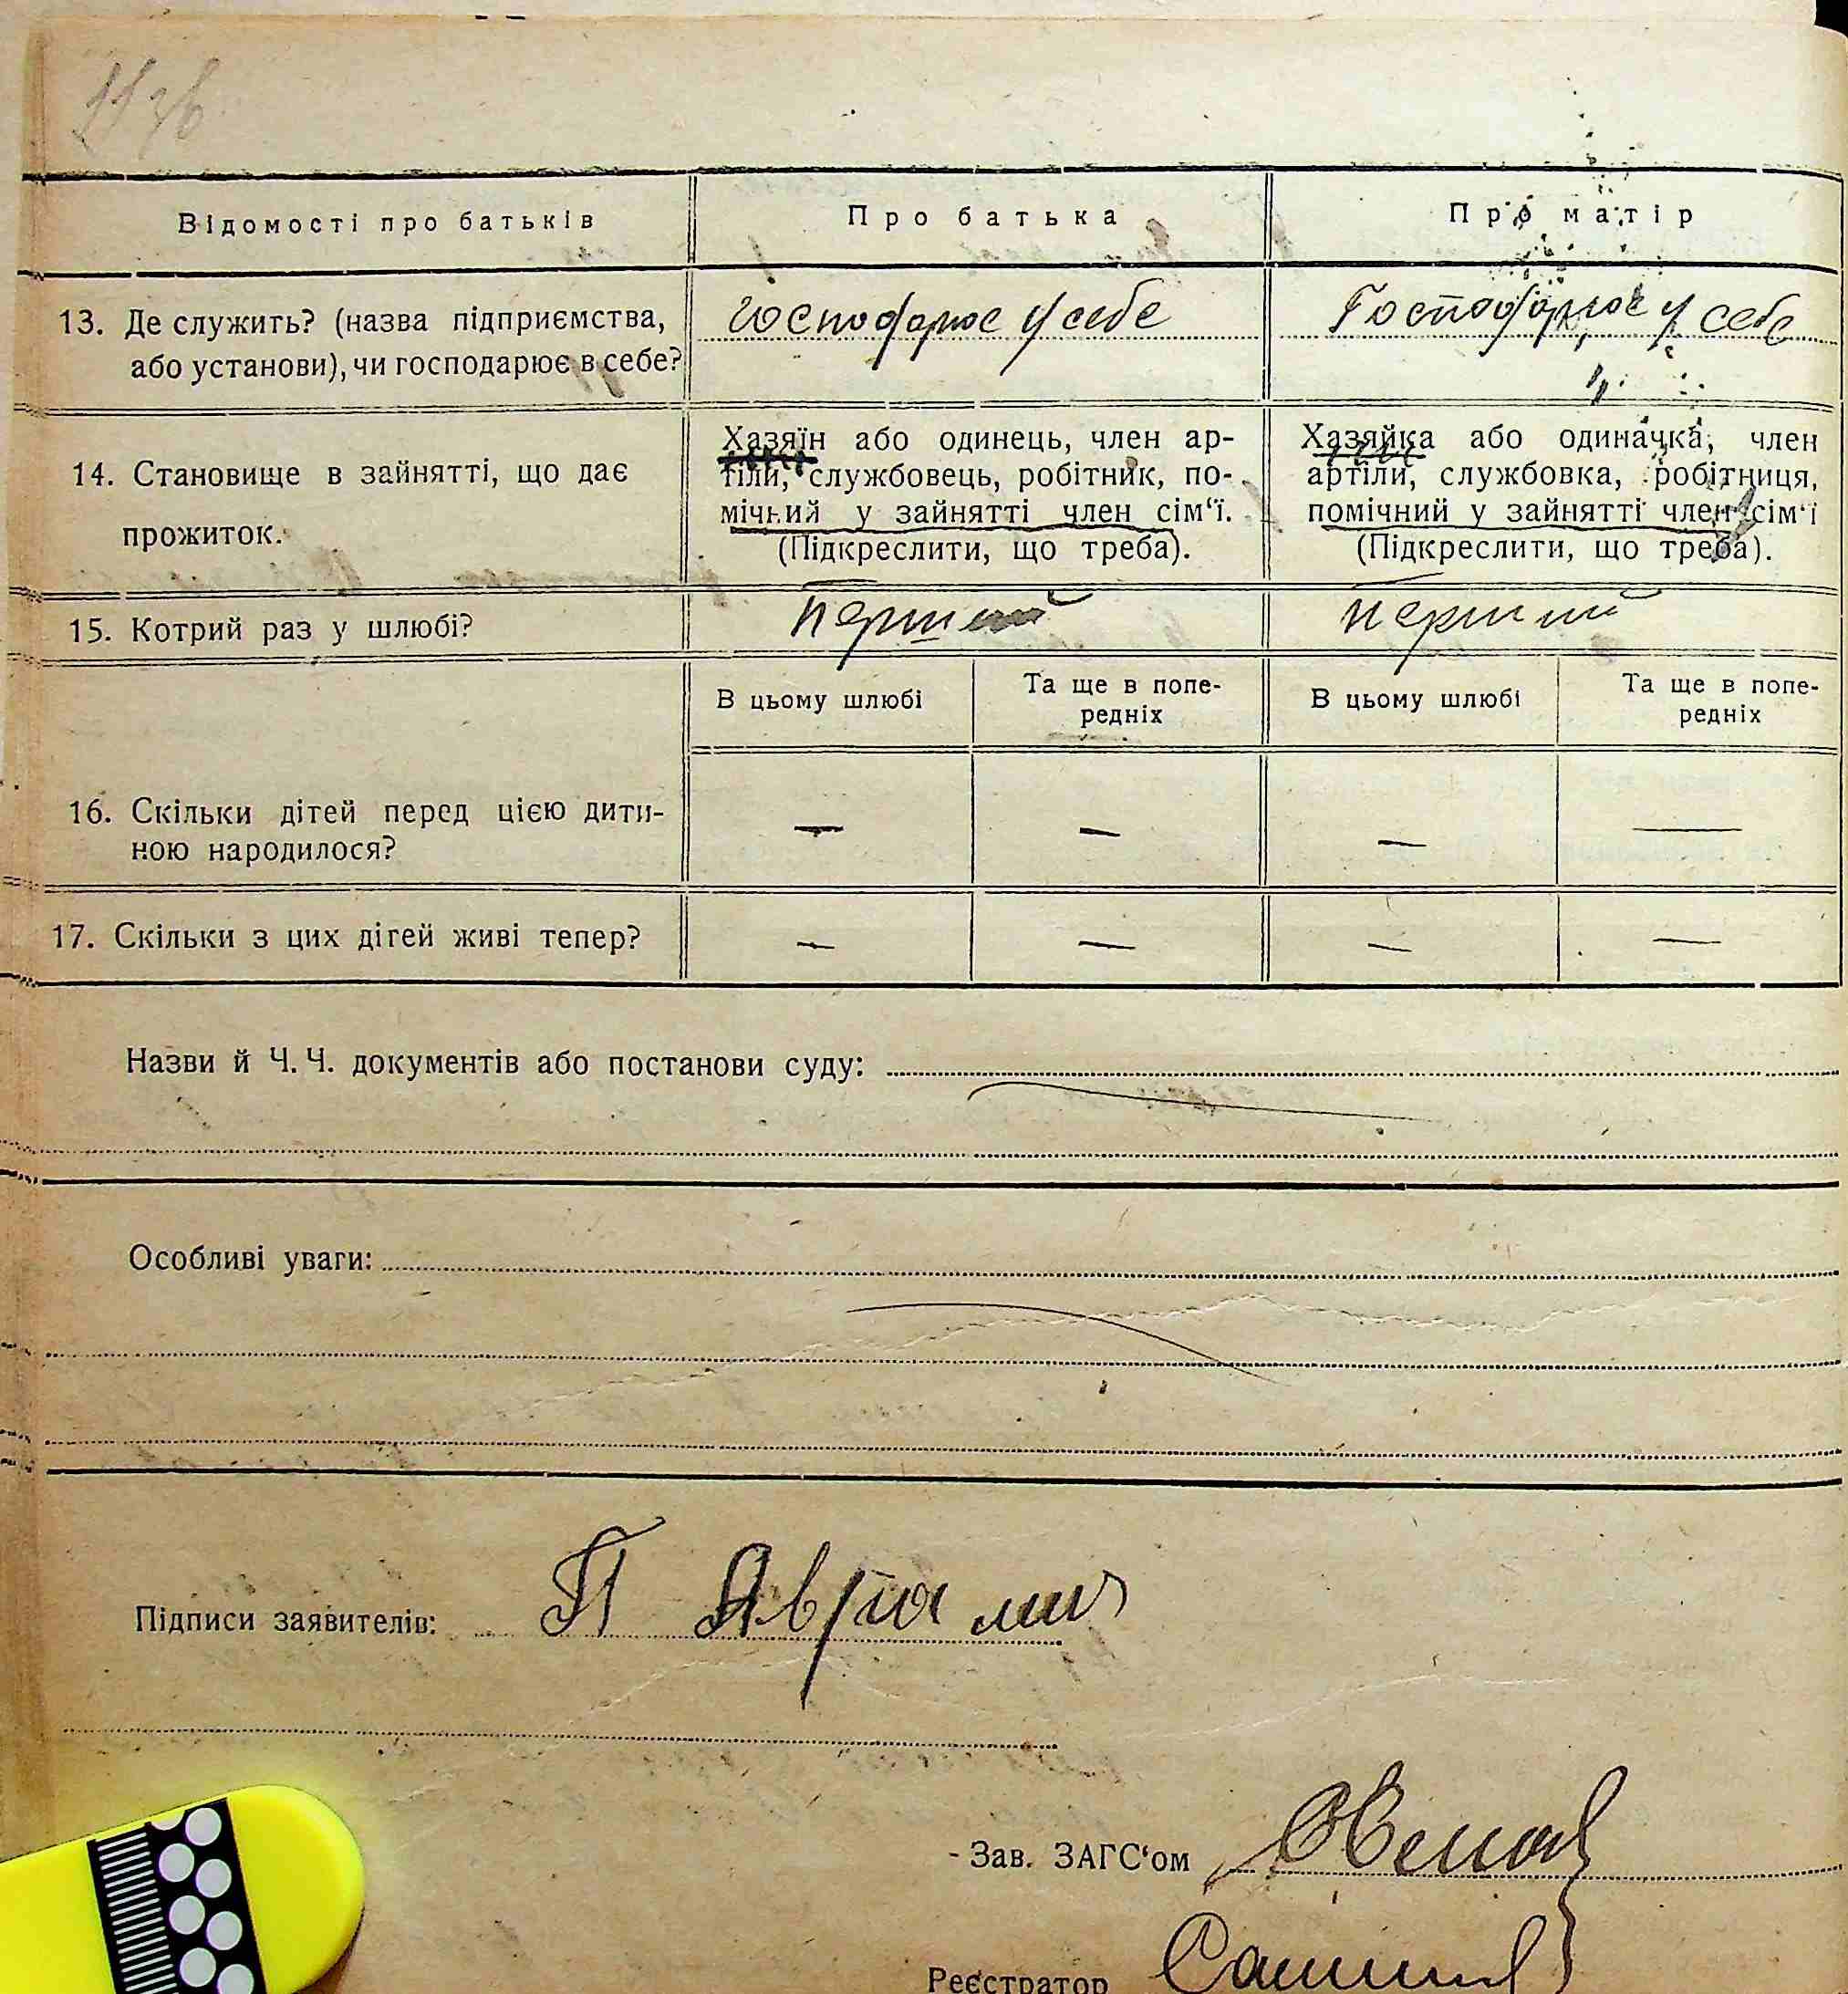 Відомості про батьків
Про батька
Про матір
13. Де служить? (назва підприємства,
або установи), чи господарює в себе?
господарює у себе
Господарює у себе
14. Становище в зайнятті, що дає
прожиток.
Хазяїн або одинець, член ар-
тіли, службовець, робітник, по-
мічний у зайнятті член сім‘ї.
(Підкреслити, що треба).
Хазяйка або одиначка, член
артіли, службовка, робітниця,
помічний у зайнятті член сім‘ї
(Підкреслити, що треба).
15. Котрий раз у шлюбі?
перший
перший
В цьому шлюбі
Та ще в попе-
редніх
В цьому шлюбі
Та ще в попе-
редніх
16. Скільки дітей перед цією дити-
ною народилося?
— — — —
17. Скільки з цих дітей живі тепер?
— — — —
Назви й Ч. Ч. документів або постанови суду:
Особливі уваги:
Підписи заявителів: П
Зав. ЗАГС‘ом
Реєстратор